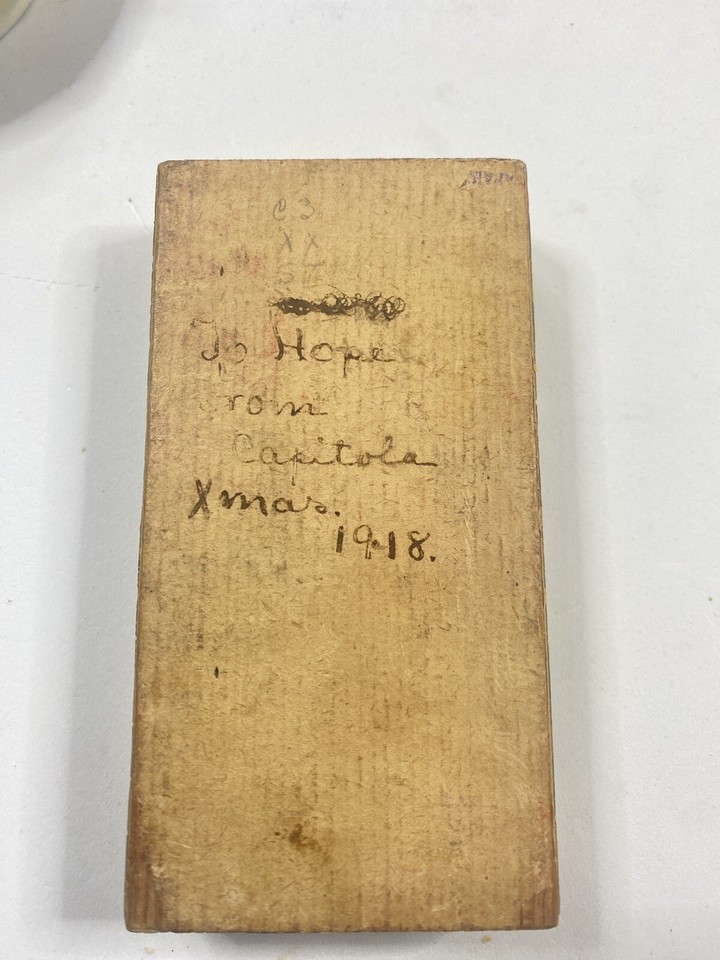 C3
XX
To Hope
rom
Capitola
Xmas.
1918.